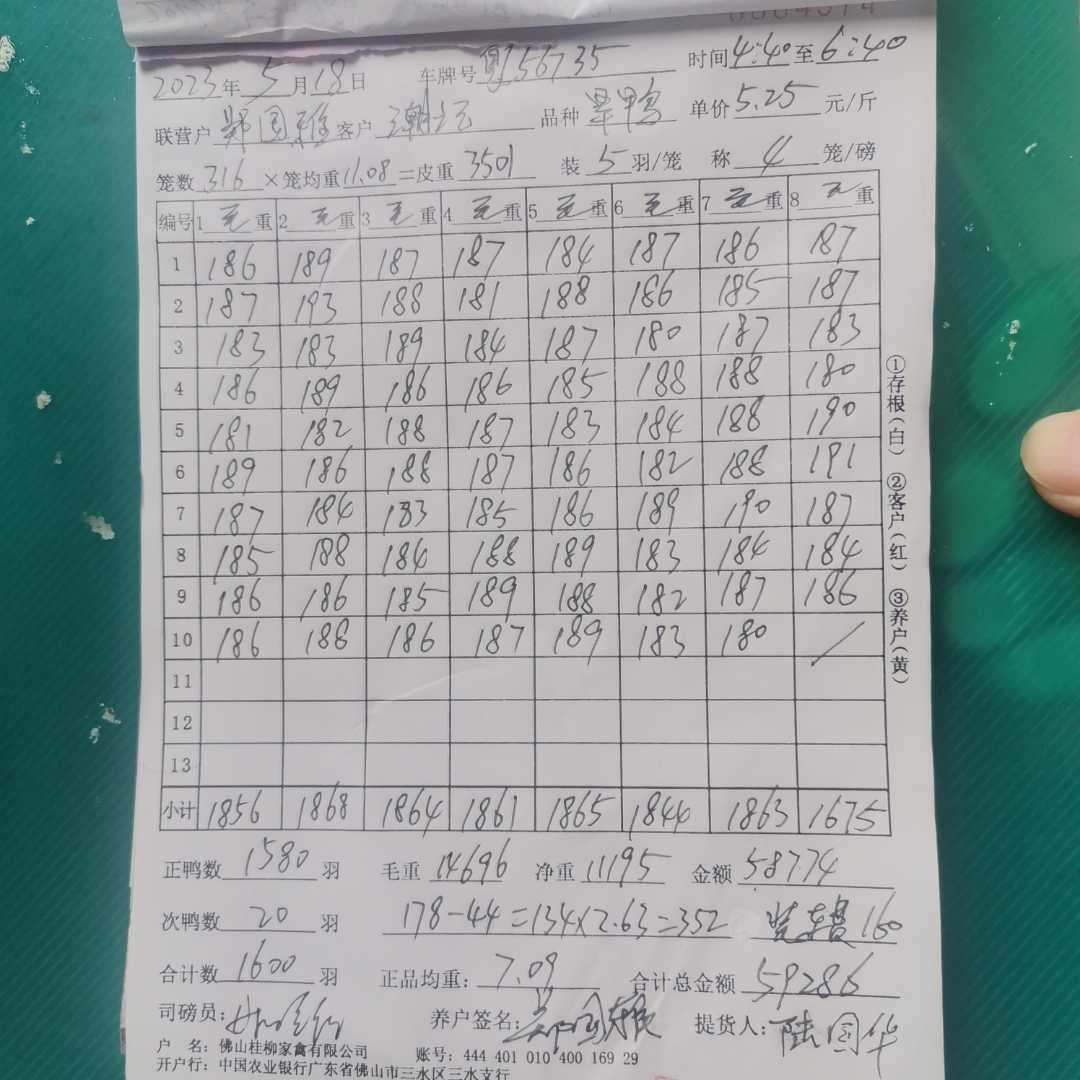 2023年5月18日 车牌号 56735 时间4:40至6:40
联营户 郑国雅 客户 潮汕 品种 旱鸭 单价5.25元/斤
笼数316×笼均重11.08=皮重3501 装5羽/笼 称4笼/磅
编号 1毛重 2毛重 3毛重 4毛重 5毛重 6毛重 7毛重 8毛重
1 186 189 187 187 184 187 186 187
2 187 193 188 181 188 186 185 187
3 183 183 189 184 187 180 187 183
4 186 189 186 186 185 188 188 180
5 181 182 188 187 183 184 188 190
6 189 186 188 187 186 182 188 191
7 187 184 183 185 186 189 190 187
8 185 188 184 188 189 183 184 184
9 186 186 185 189 188 182 187 186
10 186 188 186 187 189 183 180 /
11
12
13
小计 1856 1868 1864 1861 1865 1844 1863 1675
①存根(白) ②客户(红) ③养户(黄)
正鸭数1580羽 毛重14696 净重11195 金额58774
次鸭数20羽 178-44=134×2.63=352 装车费160
合计数1600羽 正品均重:7.09 合计总金额59286
司磅员: 养户签名: 提货人:陆国华
户 名:佛山桂柳家禽有限公司 账号:444 401 010 400 169 29
开户行:中国农业银行广东省佛山市三水区三水支行